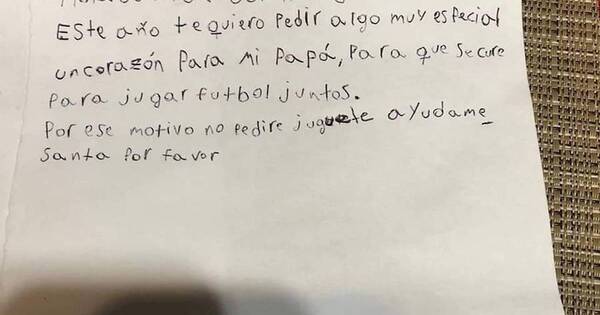 Este año te quiero pedir algo muy especial
un corazón para mi papá, para que se cure
para jugar futbol juntos.
Por ese motivo no pedire juguete ayudame
santa por favor